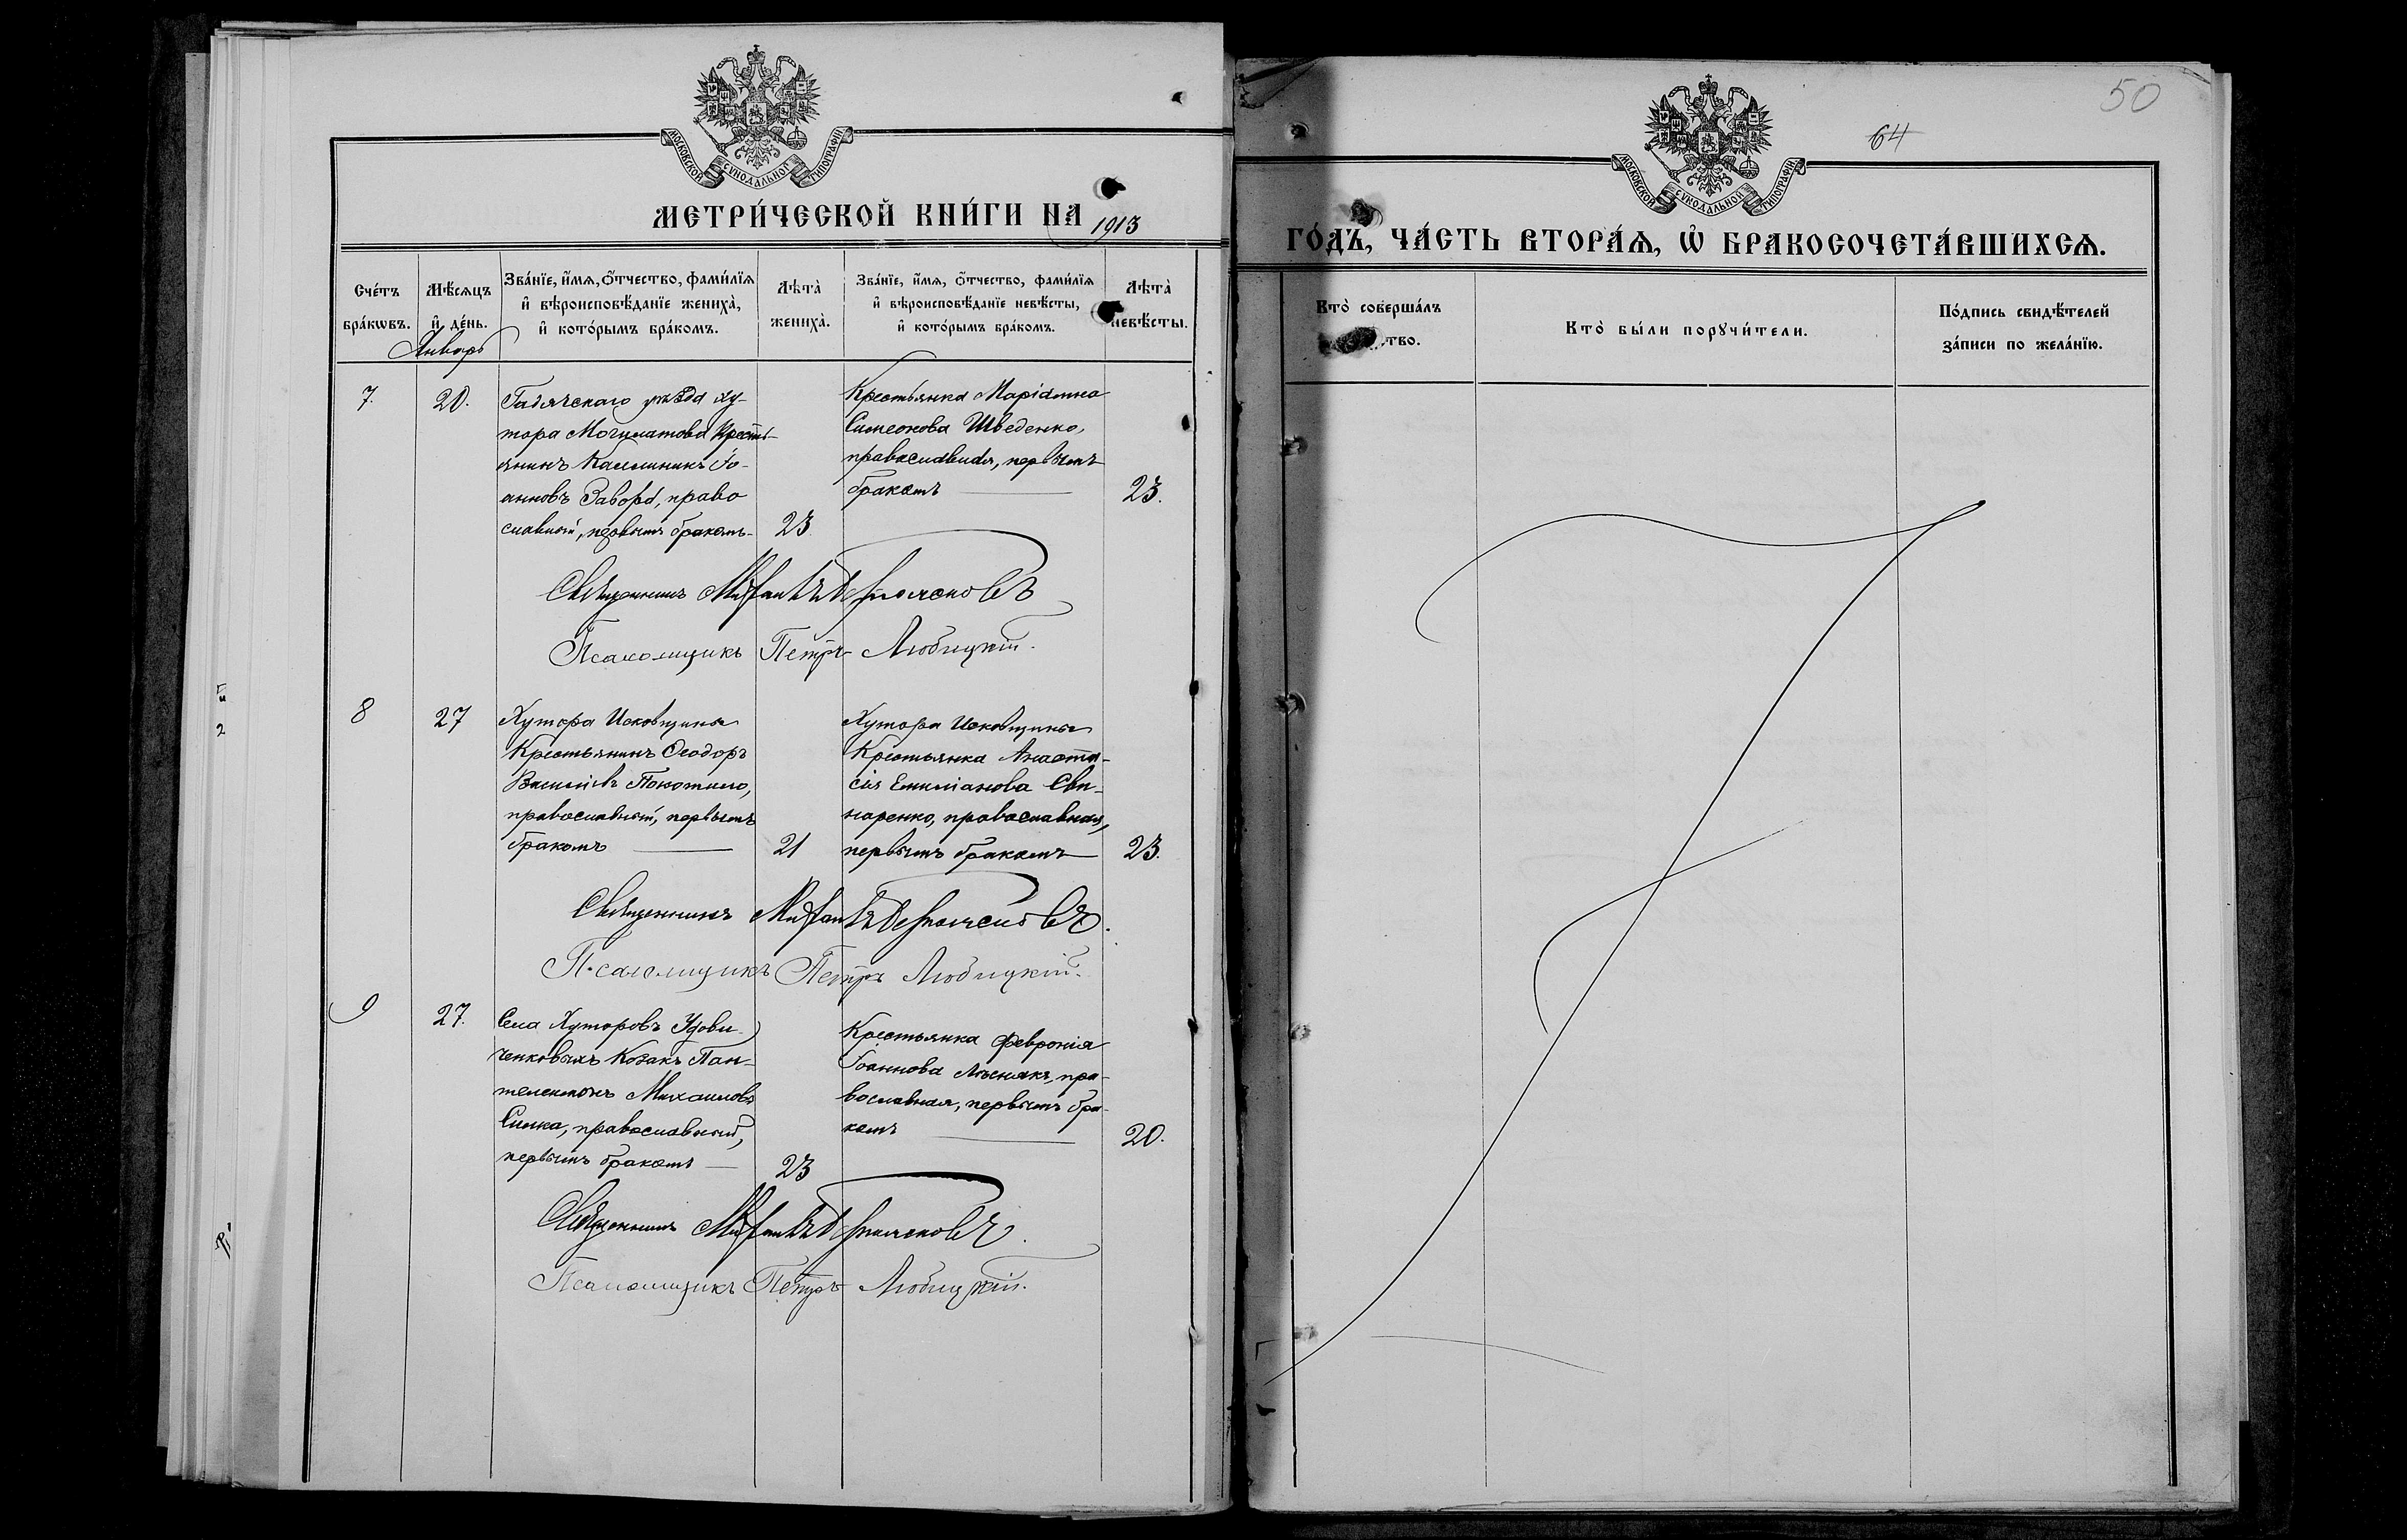 МОСКОВСКОЙ СѴНОДАЛЬНОЙ ТИПОГРАФІИ
МЕТРИ́ЧЕСКОЙ КНИ́ГИ НА 1913
Сче́тъ бра́кѡвъ.
Мѣ́сяцъ и҆ де́нь.
Зва́нїе, и҆́мѧ, ѻ҆́тчество, фами́лїѧ и҆ вѣроисповѣ́данїе жениха̀, и҆ кото́рымъ бра́комъ.
Лѣта̀ жениха̀.
Зва́нїе, и҆́мѧ, ѻ҆́тчество, фами́лїѧ и҆ вѣроисповѣ́данїе невѣ́сты, и҆ кото́рымъ бра́комъ.
Лѣта̀ невѣ́сты.
Январь
7.
20.
Гадячскаго уѣзда ху-
тора Кресть-
янинъ Каллиникъ Іо-
анновъ Завора, право
славный, первымъ бракомъ
23
Крестьянка Маріамна
Симеонова Шведенко,
православная, первымъ
бракомъ
23.
Священникъ Митрофанъ
Псаломщикъ Петръ Любицкій.
8
27
Хутора Исковщины
Крестьянинъ Ѳеодоръ
Василіевъ Покотило,
православный, первымъ
бракомъ
21
Хутора Исковщины
Крестьянка Анаста-
сія Емиліанова Сви-
наренко, православная,
первымъ бракомъ
23.
Священникъ Митрофанъ
Псаломщикъ Петръ Любицкій.
9
27.
Села Хуторовъ Удови-
ченковыхъ Козакъ Пан-
телеимонъ Михаиловъ
Силка, православный,
первымъ бракомъ
23
Крестьянка Февронія
Іоаннова Лѣснякъ, пра-
вославная, первымъ бра-
комъ
20.
Священникъ Митрофанъ
Псаломщикъ Петръ Любицкій.
50
64
МОСКОВСКОЙ СѴНОДАЛЬНОЙ ТИПОГРАФІИ
ГО́ДЪ, ЧА́СТЬ ВТОРА́Ѧ, Ѽ БРАКОСОЧЕТА́ВШИХСѦ.
Кто̀ соверша́лъ
тво.
Кто̀ бы́ли порꙋчи́тели.
По́дпись свидѣ́телей
за́писи по жела́нїю.